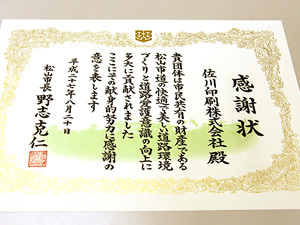 感謝状
佐川印刷株式会社 殿
貴団体は市民共有の財産である
松山市道の快適で美しい道路環境
づくりと道路愛護意識の向上に
多大に貢献されました
ここにその献身的努力に感謝の
意を表します
平成二十七年八月二十日
松山市長 野志克仁